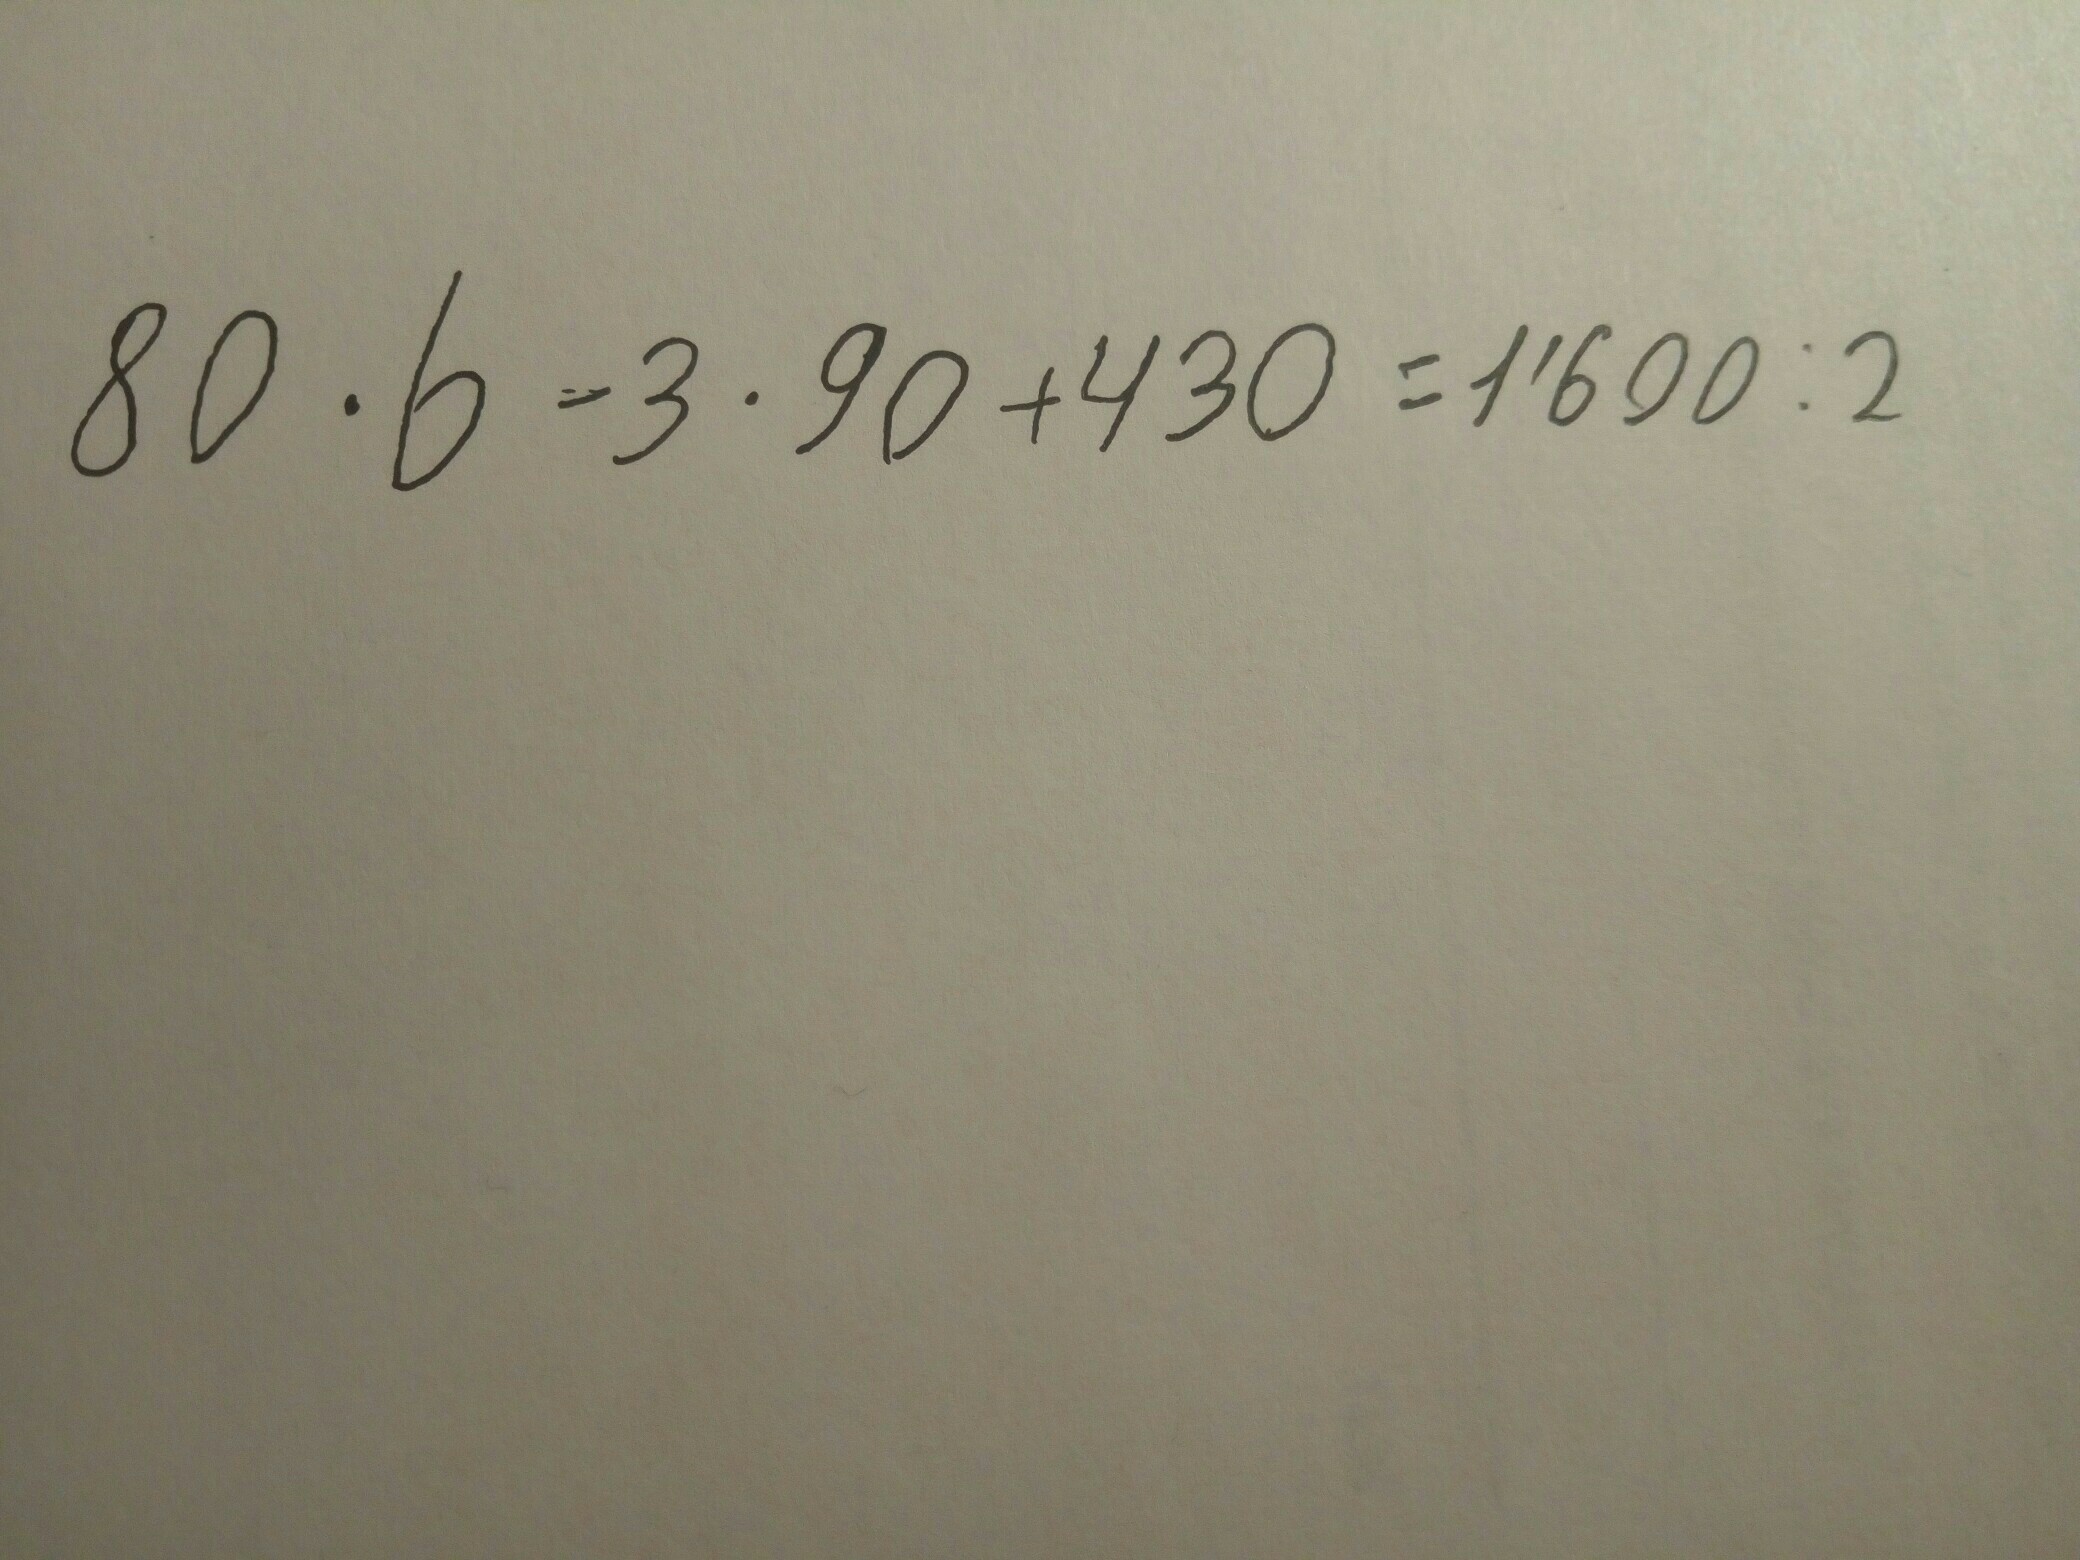 80 · 6 - 3 · 90 + 430 = 1'600 : 2